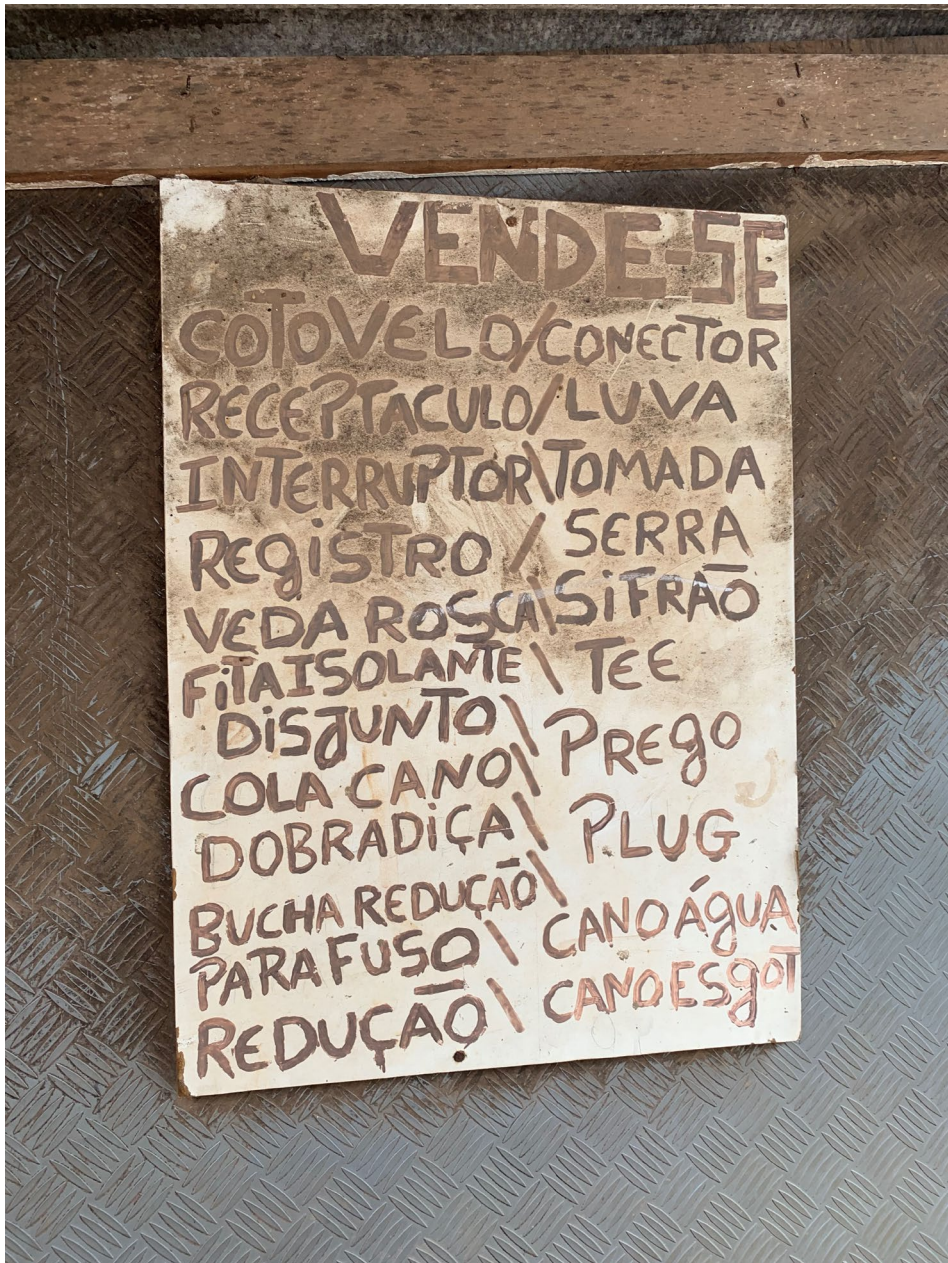 VENDE-SE
COTOVELO/CONECTOR
RECEPTACULO/LUVA
INTERRUPTOR\TOMADA
REgiSTRO / SERRA
VEDA ROSCA\SiFRÃO
FiTA ISOLANTE \ TEE
DISJUNTO \ PREgO
COLA CANO \
DOBRADiÇA \ PLUG
BUCHA REDUÇÃO \
PARAFUSO \ CANO ÁgUA
REDUÇÃO \ CANO ESgOT